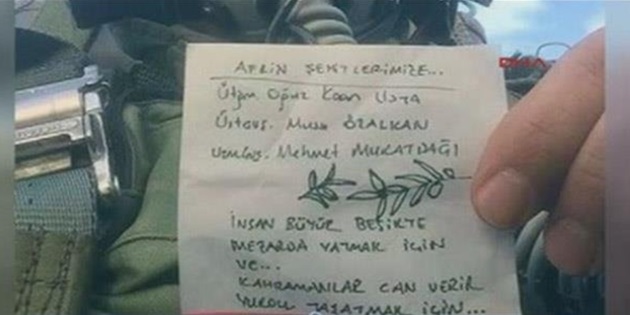 AFRİN ŞEHİTLERİMİZE...
Ütğm. Oğuz Kaan Usta
Üstçvş. Musa ÖZALKAN
Uzmçvş. Mehmet MURATDAĞI
İNSAN BÜYÜR BEŞİKTE
MEZARDA YATMAK İÇİN
VE...
KAHRAMANLAR CAN VERİR
YURDU YAŞATMAK İÇİN...
DHA